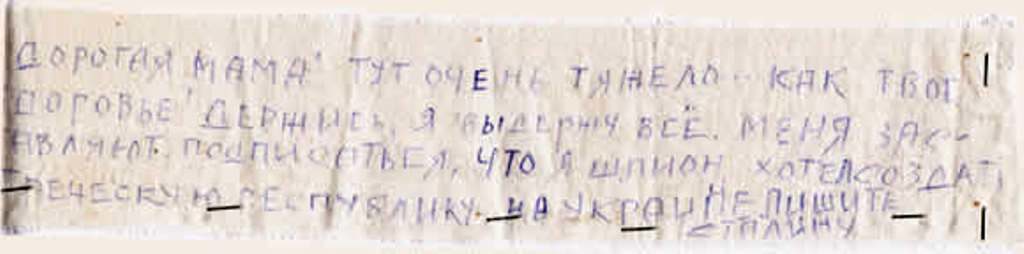 ДОРОГАЯ МАМА! ТУТ ОЧЕНЬ ТЯЖЕЛО.. КАК ТВОЕ
ДОРОВЬЕ! ДЕРЖИСЬ, Я ВЫДЕРЖУ ВСЁ. МЕНЯ ЗАС-
АВЛЯЮТ ПОДПИСАТЬСЯ, ЧТО Я ШПИОН ХОТЕЛ СОЗДАТЬ
ГРЕЧЕСКУЮ РЕСПУБЛИКУ НА УКРАИНЕ ПИШИТЕ
СТАЛИНУ